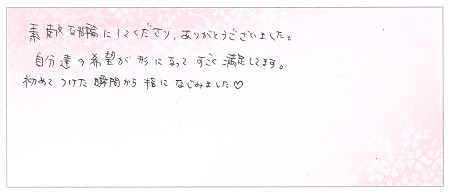 素敵な指輪にしてくださり、ありがとうございました。
自分達の希望が形になって すごく満足してます。
初めて つけた瞬間から 指に なじみました♡